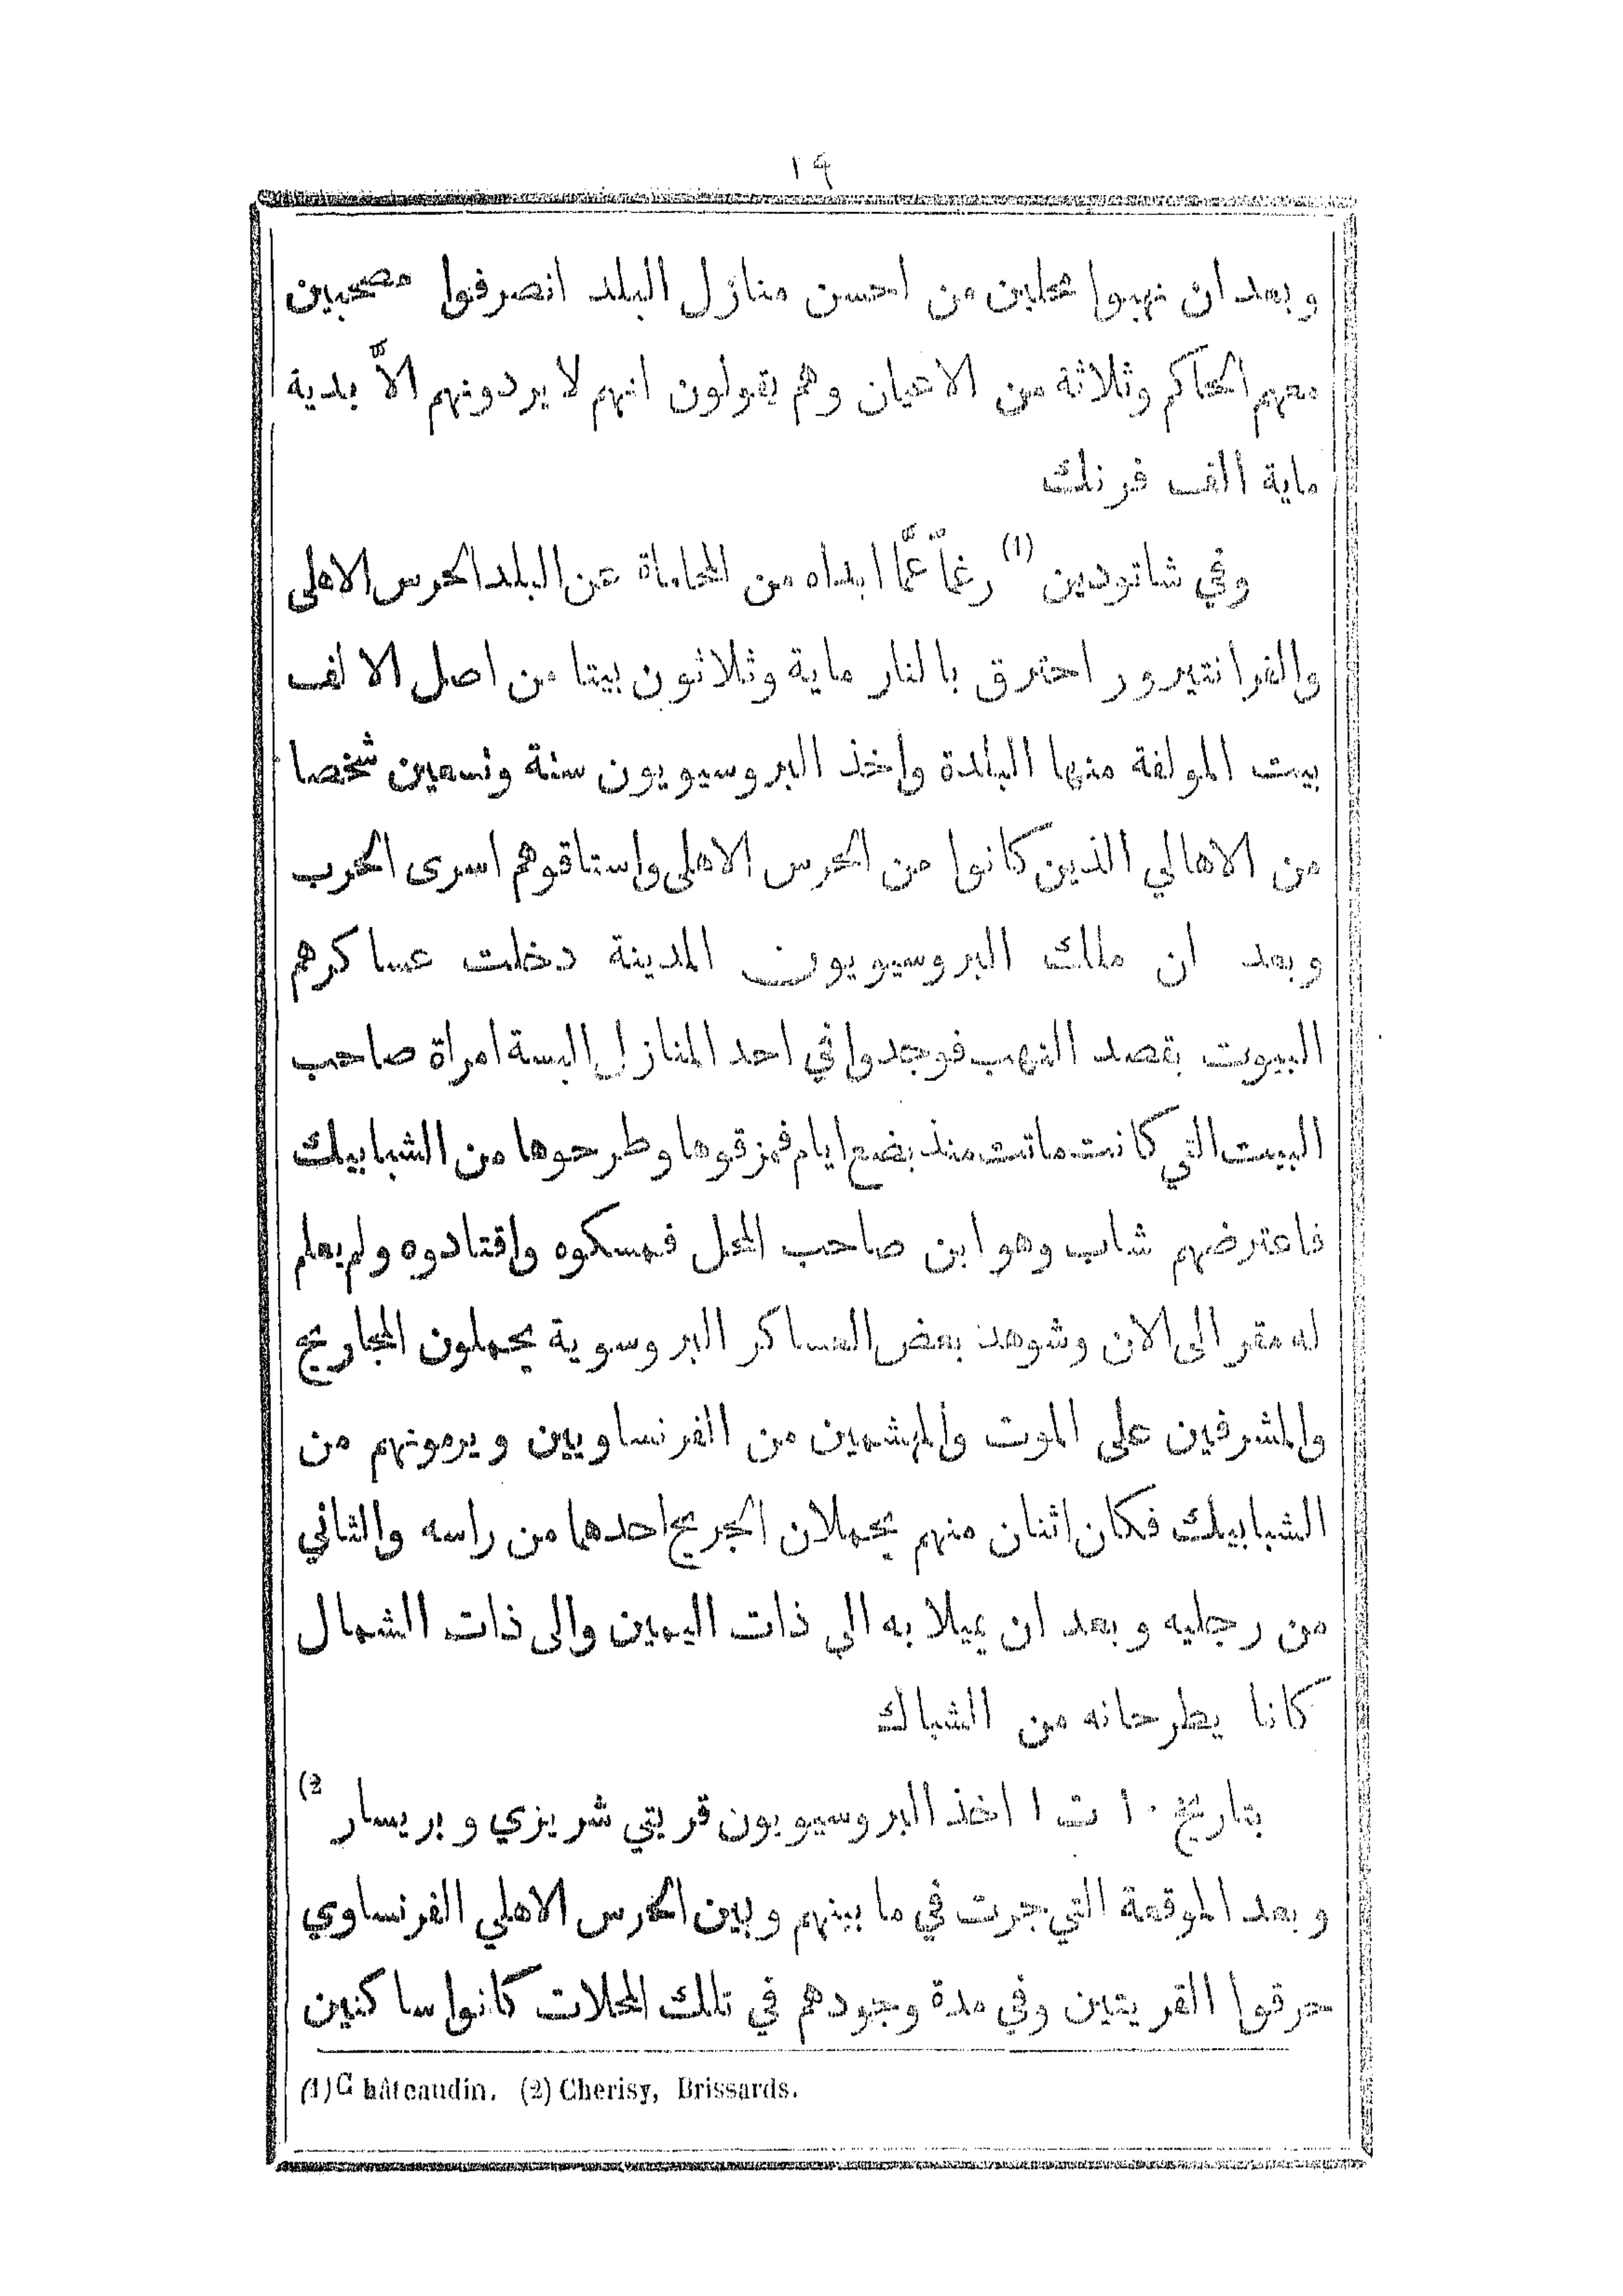 ١٩
وبعد ان نهبوا محلين من احسن منازل البلد انصرفوا مصحبين
معهم الحاكم وثلاثة من الاعيان وهم يقولون انهم لا يردونهم الاّ بدية
ماية الف فرنك
وفي شاتودين (1) رغماً عمَّا ابداه من المحاماة عن البلد الحرس الاهلي
والفرانتيرور احترق بالنار ماية وثلاثون بيتا من اصل الالف
بيت المولفة منها البلدة واخذ البروسيويون ستة وتسعين شخصا
من الاهالي الذين كانوا من الحرس الاهلي واستاقوهم اسرى الحرب
وبعد ان ملك البروسيويون المدينة دخلت عساكرهم
البيوت بقصد النهب فوجدوا في احد المنازل البسة امراة صاحب
البيت التي كانت ماتت منذ بضع ايام فمزقوها وطرحوها من الشبابيك
فاعترضهم شاب وهو ابن صاحب المحل فمسكوه واقتادوه ولم يعلم
له مقر الى الان وشوهد بعض العساكر البروسوية يحملون المجاريح
والمشرفين على الموت والمهشمين من الفرنساويين ويرمونهم من
الشبابيك فكان اثنان منهم يحملان الجريح احدهما من راسه والثاني
من رجليه وبعد ان يميلا به الى ذات اليمين والى ذات الشمال
كانا يطرحانه من الشباك
بتاريخ ١٠ ت ١ اخذ البروسيويون قريتي شريزي وبريسار (2
وبعد الموقعة التي جرت في ما بينهم وبين الحرس الاهلي الفرنساوي
حرقوا القريتين وفي مدة وجودهم في تلك المحلات كانوا ساكنين
(1) Châteaudin. (2) Cherisy, Brissards.